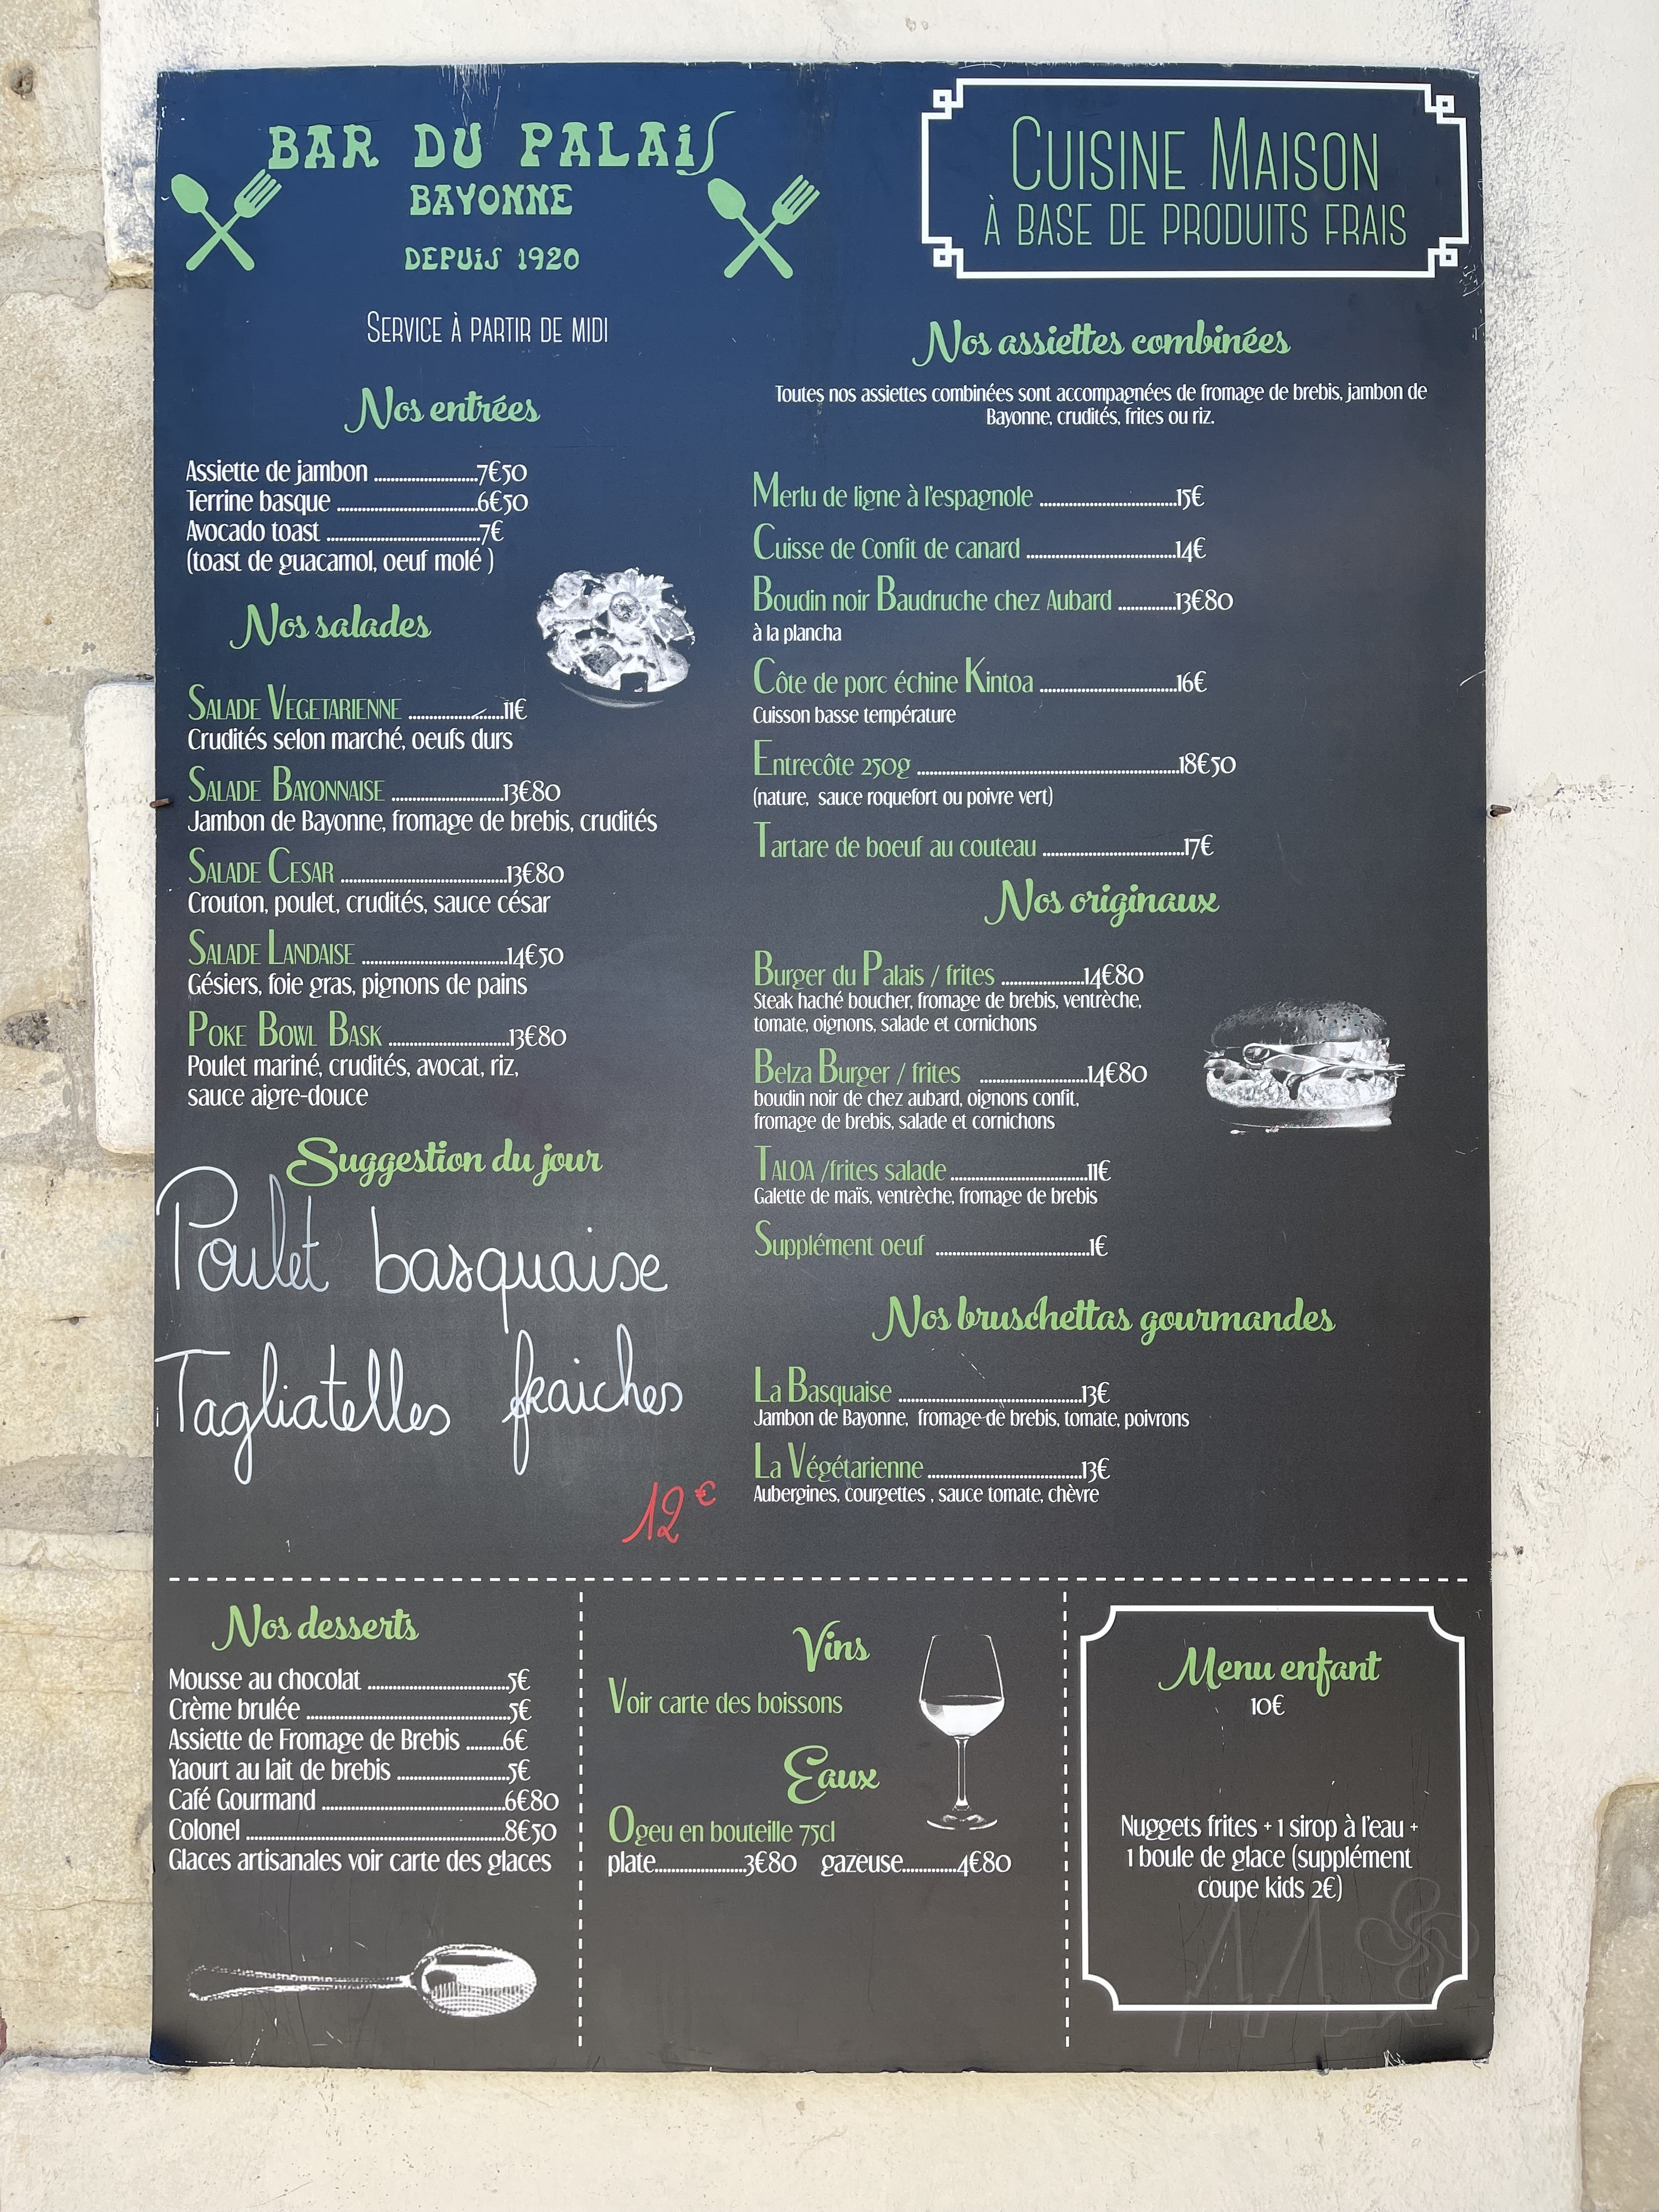 BAR DU PALAIS
BAYONNE
DEPUIS 1920
SERVICE À PARTIR DE MIDI
Nos entrées
Assiette de jambon ........................7€50
Terrine basque .................................6€50
Avocado toast ....................................7€
(toast de guacamol, oeuf molé )
Nos salades
SALADE VEGETARIENNE ......................11€
Crudités selon marché, oeufs durs
SALADE BAYONNAISE ..........................13€80
Jambon de Bayonne, fromage de brebis, crudités
SALADE CESAR .......................................13€80
Crouton, poulet, crudités, sauce césar
SALADE LANDAISE ..................................14€50
Gésiers, foie gras, pignons de pains
POKE BOWL BASK ............................13€80
Poulet mariné, crudités, avocat, riz,
sauce aigre-douce
Suggestion du jour
Poulet basquaise
Tagliatelles fraiches
12€
CUISINE MAISON
À BASE DE PRODUITS FRAIS
Nos assiettes combinées
Toutes nos assiettes combinées sont accompagnées de fromage de brebis, jambon de
Bayonne, crudités, frites ou riz.
Merlu de ligne à l'espagnole ................................15€
Cuisse de Confit de canard ...................................14€
Boudin noir Baudruche chez Aubard .............13€80
à la plancha
Côte de porc échine Kintoa ................................16€
Cuisson basse température
Entrecôte 250g .............................................................18€50
(nature, sauce roquefort ou poivre vert)
Tartare de boeuf au couteau .................................17€
Nos originaux
Burger du Palais / frites ...................14€80
Steak haché boucher, fromage de brebis, ventrèche,
tomate, oignons, salade et cornichons
Belza Burger / frites .........................14€80
boudin noir de chez aubard, oignons confit,
fromage de brebis, salade et cornichons
TALOA /frites salade ................................11€
Galette de maïs, ventrèche, fromage de brebis
Supplément oeuf ....................................1€
Nos bruschettas gourmandes
La Basquaise ...........................................13€
Jambon de Bayonne, fromage de brebis, tomate, poivrons
La Végétarienne ....................................13€
Aubergines, courgettes , sauce tomate, chèvre
Nos desserts
Mousse au chocolat .................................5€
Crème brulée ................................................5€
Assiette de Fromage de Brebis .........6€
Yaourt au lait de brebis ..........................5€
Café Gourmand ...........................................6€80
Colonel .............................................................8€50
Glaces artisanales voir carte des glaces
Vins
Voir carte des boissons
Eaux
Ogeu en bouteille 75cl
plate.....................3€80 gazeuse.............4€80
Menu enfant
10€
Nuggets frites + 1 sirop à l'eau +
1 boule de glace (supplément
coupe kids 2€)